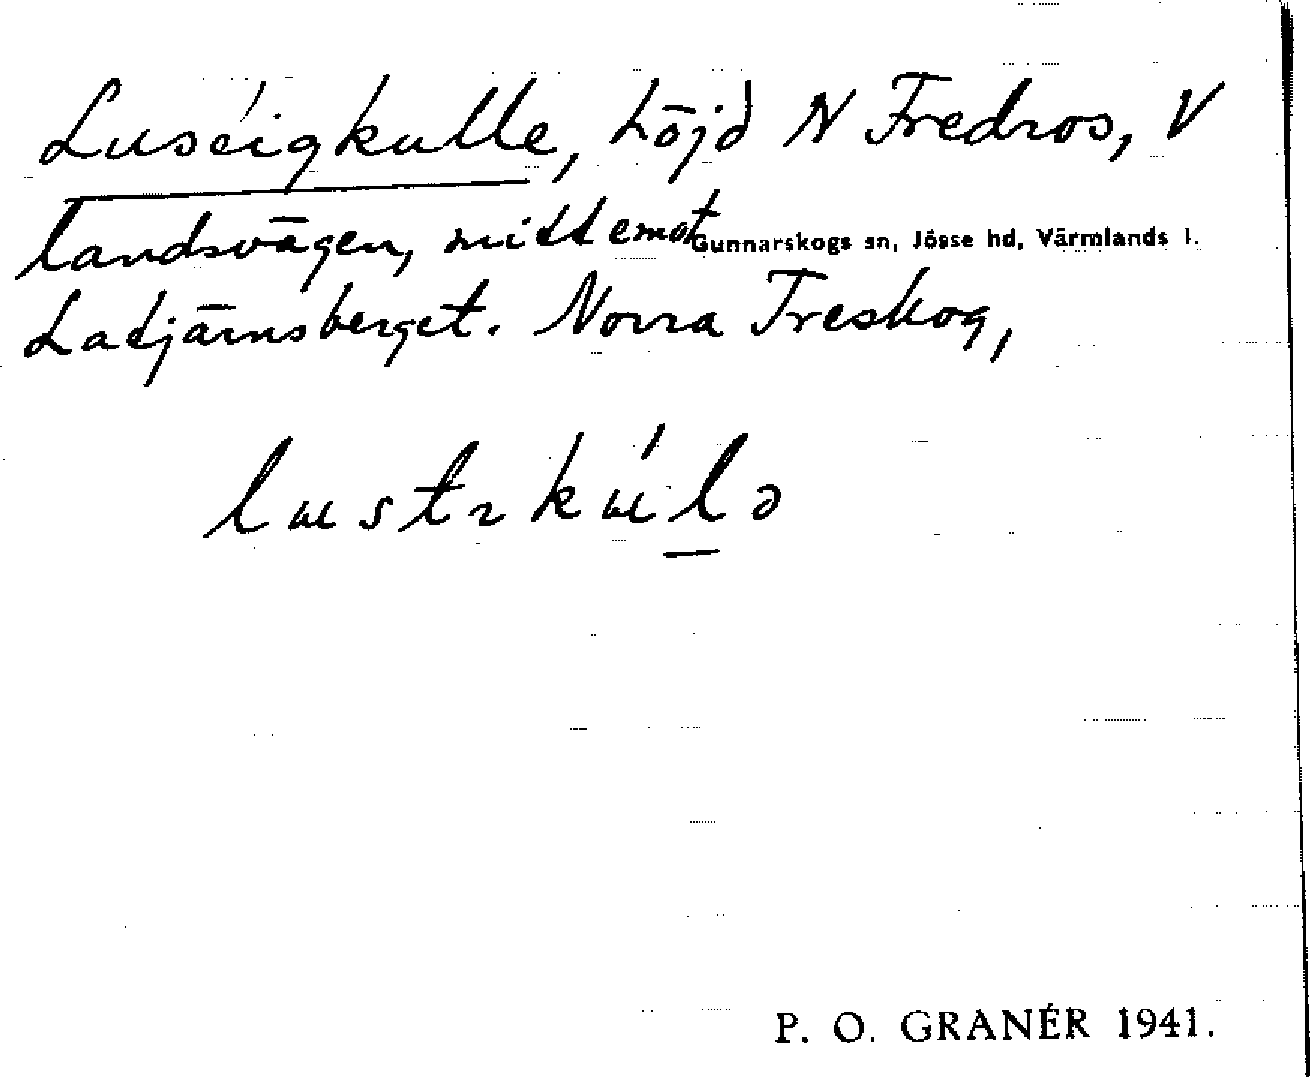 Luséigkulle, höjd N Fredros, V
landsvägen, mitt emot
Gunnarskogs sn, Jösse hd, Värmlands l.
Ladjärnsberget. Norra Treskog,
P. O. GRANÉR 1941.